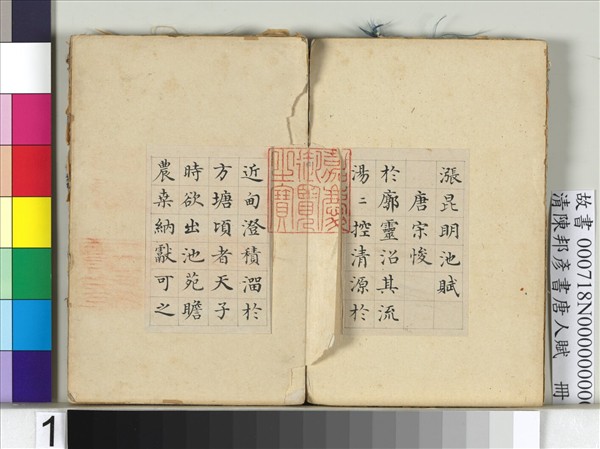 漲昆明池賦
唐宗悛
於廓靈沼其流
湯〻控清源於
近甸澄積溜於
方塘頃者天子
時欲出池苑瞻
農桒納獻可之
嘉慶
御覽
之寶
故書 000718N000000000
清陳邦彥書唐人賦 冊
1